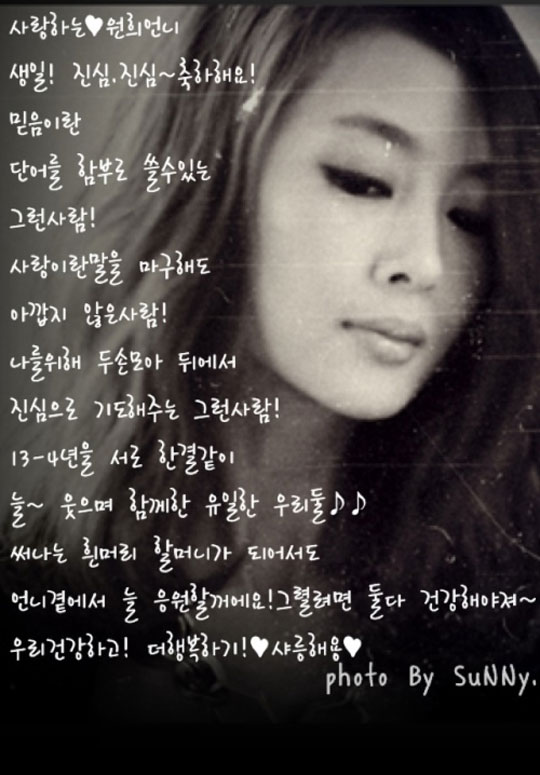 사랑하는♥원희언니
생일! 진심.진심~축하해요!
믿음이란
단어를 함부로 쓸수있는
그런사람!
사랑이란말을 마구해도
아깝지 않은사람!
나를위해 두손모아 뒤에서
진심으로 기도해주는 그런사람!
13-4년을 서로 한결같이
늘~ 웃으며 함께한 유일한 우리둘♪♪
써나는 흰머리 할머니가 되어서도
언니곁에서 늘 응원할꺼에요!그렬려면 둘다 건강해야져~
우리건강하고! 더행복하기!♥샤릉해용♥
photo By SuNNy.